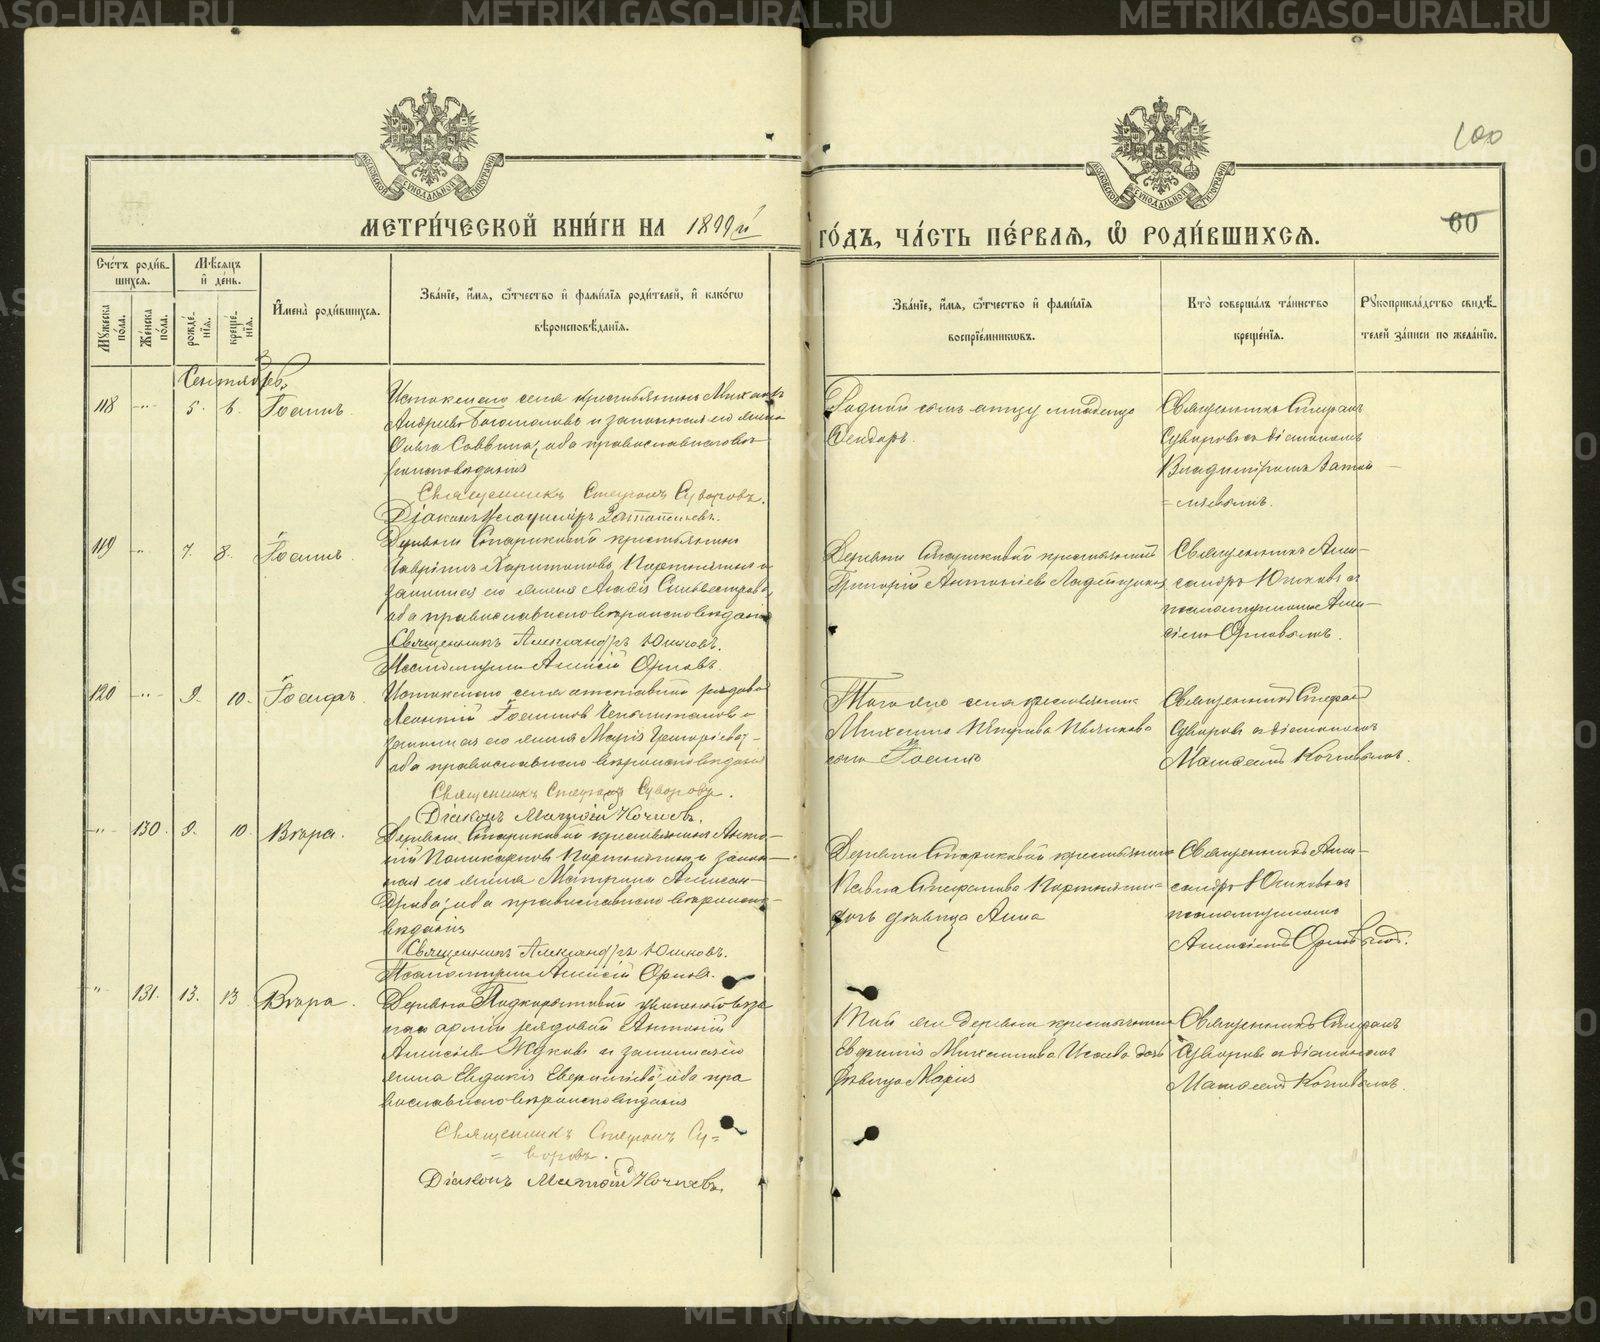 METRIKI.GASO-URAL.RU
100
60
МОСКОВСКОЙ СѴНОДАЛЬНОЙ ТИПОГРАФІИ
МЕТРИ́ЧЕСКОЙ КНИ́ГИ НА 1899й
ГО́ДЪ, ЧА́СТЬ ПЕ́РВАЯ, Ѡ҆ РОДИ́ВШИХСЯ.
Сче́тъ роди́вшихся.
Мꙋ́жеска по́ла.
Же́нска по́ла.
Мѣ́сяцъ и҆ де́нь.
рожде́нїя.
креще́нїя.
И҆мена̀ роди́вшихся.
Зва́нїе, и҆́мя, ѻ҆́тчество и҆ фами́лїя роди́телей, и҆ како́гѡ
вѣроисповѣ́данїя.
Зва́нїе, и҆́мя, ѻ҆́тчество и҆ фами́лїя
воспрїе́мниковъ.
Кто̀ соверша́лъ та́инство
креще́нїя.
Рꙋкоприкла́дство свидѣ́-
телей за́писи по жела́нїю.
Сентябрь.
118 -"- 5. 6. Іоаннъ.
Истокскаго села крестьянинъ Михаилъ
Андреевъ Богомоловъ и законная его жена
Ольга Саввина, оба православнаго вѣ-
роисповѣданія
Священникъ Стефанъ Суворовъ.
Діаконъ Владиміръ
Родной сынъ отцу младенца
Священникъ Стефанъ
Суворовъ съ діакономъ
Владиміромъ
119 -"- 7. 8. Іоаннъ.
Деревни Стариковой крестьянинъ
Харитоновъ Портнягинъ и
законная его жена
оба православнаго вѣроисповѣданія
Священникъ Александръ Юшковъ.
Псаломщикъ Алексій Орловъ.
Деревни Стариковой крестьянинъ
Григорій Антоніевъ
Священникъ Алек-
сандръ Юшковъ съ
псаломщикомъ Алек-
сіемъ Орловымъ.
120 -"- 9. 10. Іосифъ.
Истокскаго села отставной рядовой
Леонтій Іоанновъ и
законная его жена Марія Григоріева,
оба православнаго вѣроисповѣданія
Священникъ Стефанъ Суворовъ.
Діаконъ Матѳій Кочневъ.
Того же села крестьянина
Михаила Петрова
сынъ Іоаннъ
Священникъ Стефанъ
Суворовъ съ діакономъ
Матѳеемъ Кочневымъ.
-"- 130. 9. 10. Вѣра.
Деревни Стариковой крестьянинъ Анто-
ній Поликарповъ Портнягинъ и закон-
ная его жена Матрона Алексан-
дрова, оба православнаго вѣроиспо-
вѣданія
Священникъ Александръ Юшковъ.
Псаломщикъ Алексій Орловъ.
Деревни Стариковой крестьянина
Павла Стефанова Портнягина
дочь дѣвица Анна
Священникъ Алек-
сандръ Юшковъ съ
псаломщикомъ
Алексіемъ Орловымъ.
-"- 131. 13. 13 Вѣра.
Деревни
арміи рядовой Антоній
Алексіевъ Жуковъ и законная его
жена Евдокія оба пра
вославнаго вѣроисповѣданія
Священникъ Стефанъ Су=
= воровъ.
Діаконъ Матѳій Кочневъ.
Той же деревни крестьянина
Михаилова Исаева дочь
дѣвица Марія
Священникъ Стефанъ
Суворовъ съ діакономъ
Матѳеемъ Кочневымъ.